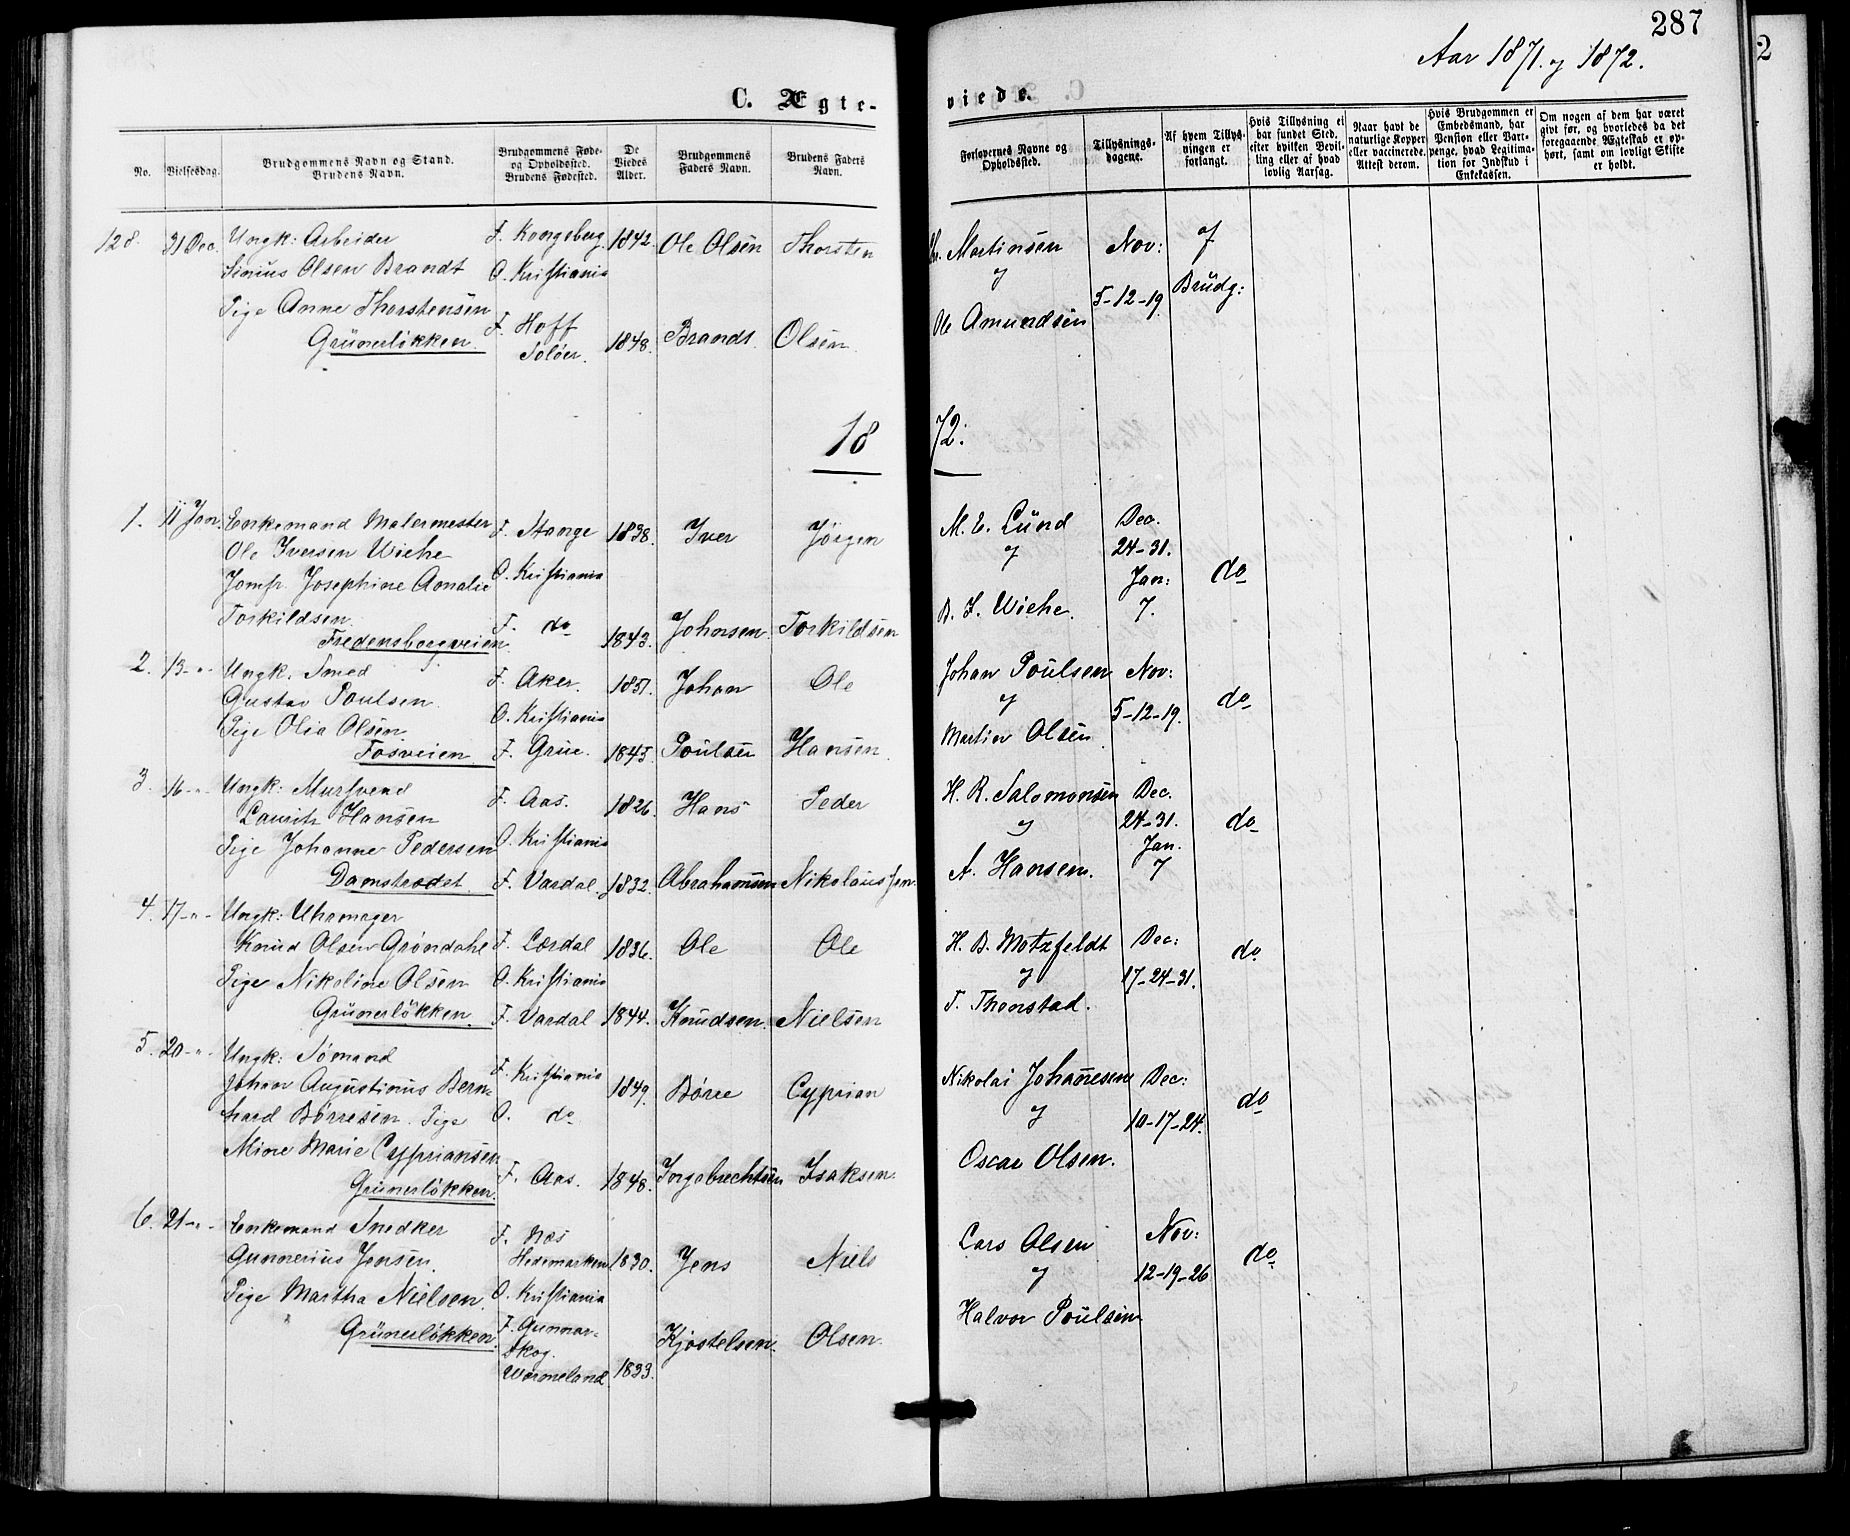 287
2
Aar 1871. og 1872.
C. Ægte-
viede.
No.
Vielsesdag.
Brudgommens Navn og Stand.
Brudens Navn.
Brudgommens Føde-
og Opholdssted.
Brudens Fødested.
De
Viedes
Alder.
Brudgommens
Faders Navn.
Brudens Faders
Navn.
Forlovernes Navne og
Opholdssted.
Tillysnings-
dagene.
Af hvem Tillys-
ningen er
forlangt.
Hvis Tillysning ei
har fundet Sted,
efter hvilken Bevil-
ling eller af hvad
lovlig Aarsag.
Naar havt de
naturlige Kopper
eller vaccinerede.
Attest derom.
Hvis Brudgommen er
Embedsmand, har
Pension eller Vart-
penge, hvad Legitima-
tion for Indskud i
Enkekassen.
Om nogen af dem har været
givt før, og hvorledes da det
foregaaende Ægteskab er op-
hørt, samt om lovligt Skifte
er holdt.
128. 31 Dec. Ungk: Arbeider F. Kongsberg 1842. Ole Olsen Thorsten
Simius Olsen Brandt O. Kristiania
Pige Anne Thorstensen
Grünerløkken. F. Hoff Soløer. 1848. Brandt. Olsen.
Chr. Martinsen Nov: af
og 5-12-19. Brudg:
Ole Amundsen
1872.
1. 11 Jan. Enkemand Malermester F. Stange 1838. Iver Jörgen
Ole Iversen Wiehe
Jomfr Josephine Amalie O. Kristiania
Torkildsen. F. do 1843. Johnsen. Torkildsen
Fredensborgveien.
M. E. Lund Dec.
og 24-31.
Jan: do
B. I. Wiehe. 7.
2. 13-"- Ungk. Smed F. Aker. 1851. Johan Ole
Gustav Poulsen. O. Kristiania
Pige Olia Olsen.
Fosveien F. Grue. 1845. Poulsen Hansen.
Johan Poulsen Nov:
og 5-12-19. do
Martin Olsen
3. 16-"- Ungk: Mursvend F. Aas. 1826. Hans Peder
Lauritz Hansen
Pige Johanne Pedersen O. Kristiania
Damstrædet. F. Vardal. 1832. Abrahamsen Nikolaussen.
H. R. Salomonsen Dec.
og 24-31. do
Jan.
A. Hansen. 7
4. 17-"- Ungk: Uhrmager
Knud Olsen Grøndahl F. Lærdal 1836. Ole Ole
Pige Nikoline Olsen O. Kristiania
Grünerløkken. F. Vardal 1844. Knudsen. Nielsen
H. B. Motzfeldt Dec: do
og 17-24-31.
T. Thonstad.
5. 20-"- Ungk: Sømand F. Kristiania
Johan Augustinus Bern- 1849. Børre Cyprian
hard Børresen. Pige O. do
Mine Marie Cypriansen
Grünerløkken. F. Aas. 1848. Ingebrechtsen Isaksen.
Nikolai Johannesen Dec:
og 10-17-24. do
Oscar Olsen.
6. 21-"- Enkemand Snedker F. Næs
Gunnerius Jensen. Hedemarken 1830. Jens Niels
Pige Martha Nielsen. O. Kristiania
Grünerløkken. F. Gunnar-
skog. Kjøstelsen. Olsen.
Wærmeland. 1833.
Lars Olsen Nov:
og 12-19-26 do
Halvor Poulsen